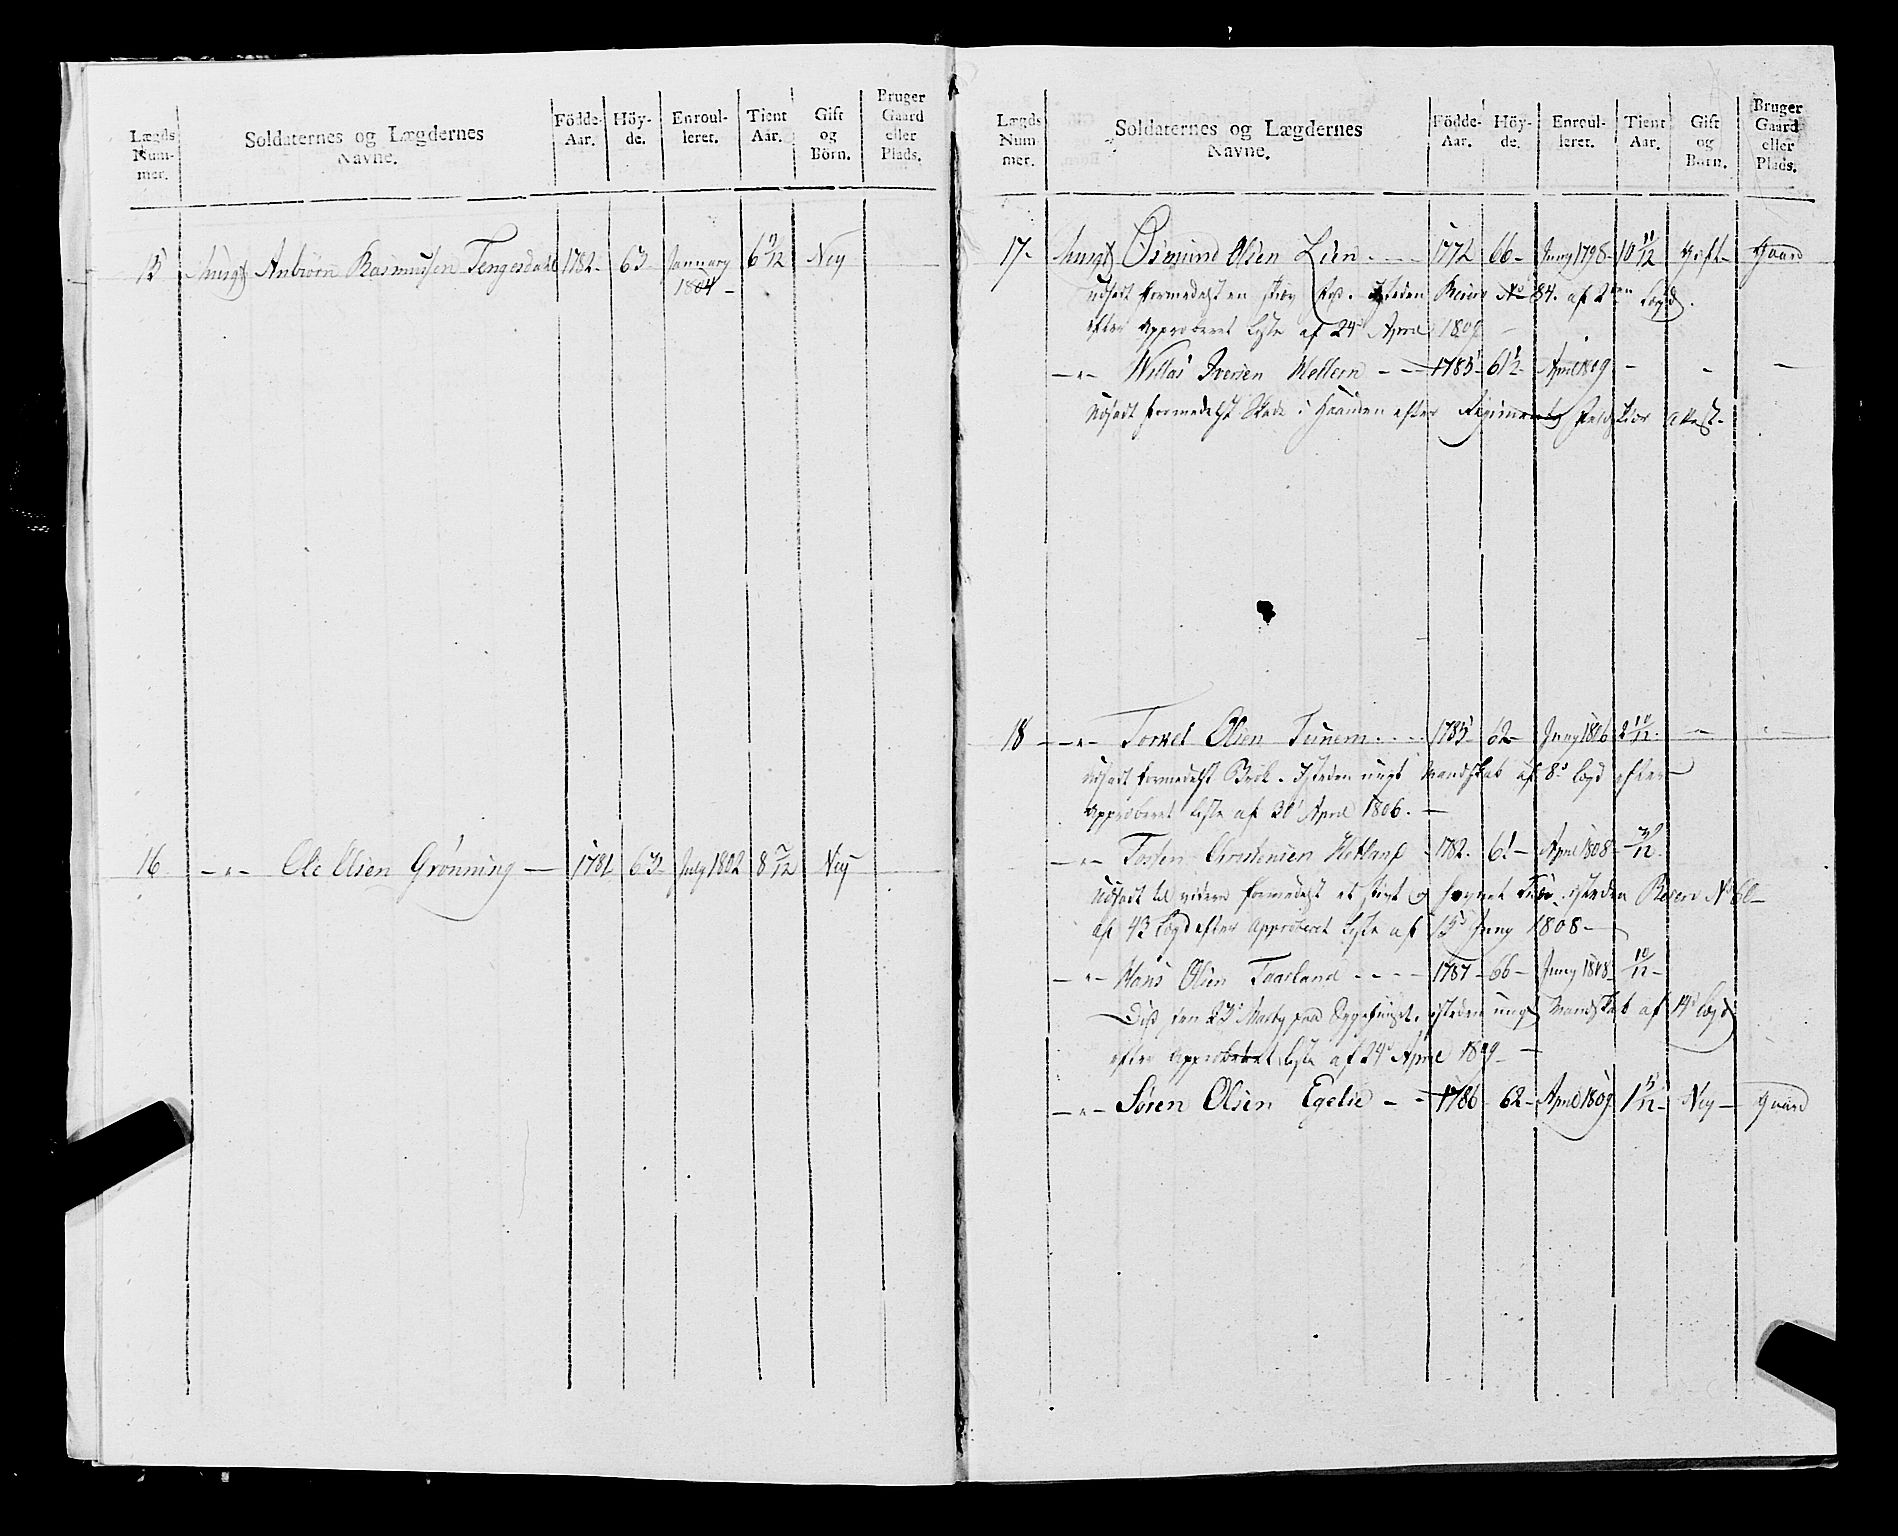 Lægds Num- mer. Soldaternes og Lægdernes Navne. Födde- Aar. Höy- de. Enroul- leret. Tient Aar. Gift og Börn. Bruger Gaard eller Plads.
15 Anbiörn Rasmussen Tengesdahl 1782 63 January 1804 - 6 9/12 Ney
16 - „ - Ole Olsen Grönning - 1781 63½ July 1802 8 3/12 Ney
Lægds Num- mer. Soldaternes og Lægdernes Navne. Födde- Aar. Höy- de. Enroul- leret. Tient Aar. Gift og Börn. Bruger Gaard eller Plads.
17- Osmund Olsen Lien - - - - 1772 66- Juny 1798- 10 11/12 Gift- Gaard
udsadt formedelst en isteden No 84. af
efter Approberet Liste af 24 April 1809 -
- „ - Iversen Hellern - - 1785 61½- April 1809 - - -
Udsadt formedelst Skade i Haanden efter Regiments Attest-
18 - „ - Torkel Olsen Tunem. . . . 1785- 62- Juny 1806 2 10/12. - -
Udsadt formedelst Brök. Isteden ungt Mandskab af 8de Lægd efter
Approberet Liste af 30 April 1806. -
- „ - Tosten Christensen Hetland - 1782. 61- April 1808- /12.
Udsadt til videre formedelst et stivt og isteden Reserv No 60-
af 43 Lægd efter Approberet Liste af 15 Juny 1808-
- „ - Hans Olsen Taarland - - - - 1787- 66- Juny 1808- 10/12-
Död den 23 Marty paa Sygehuuset. isteden ungt Mandskab af 14 Lægd
efter Approberet Liste af 24 April 1809- -
- „ - Sören Olsen Egelie - - 1786- 62- April 1809 1 5/12- Ney- Gaard